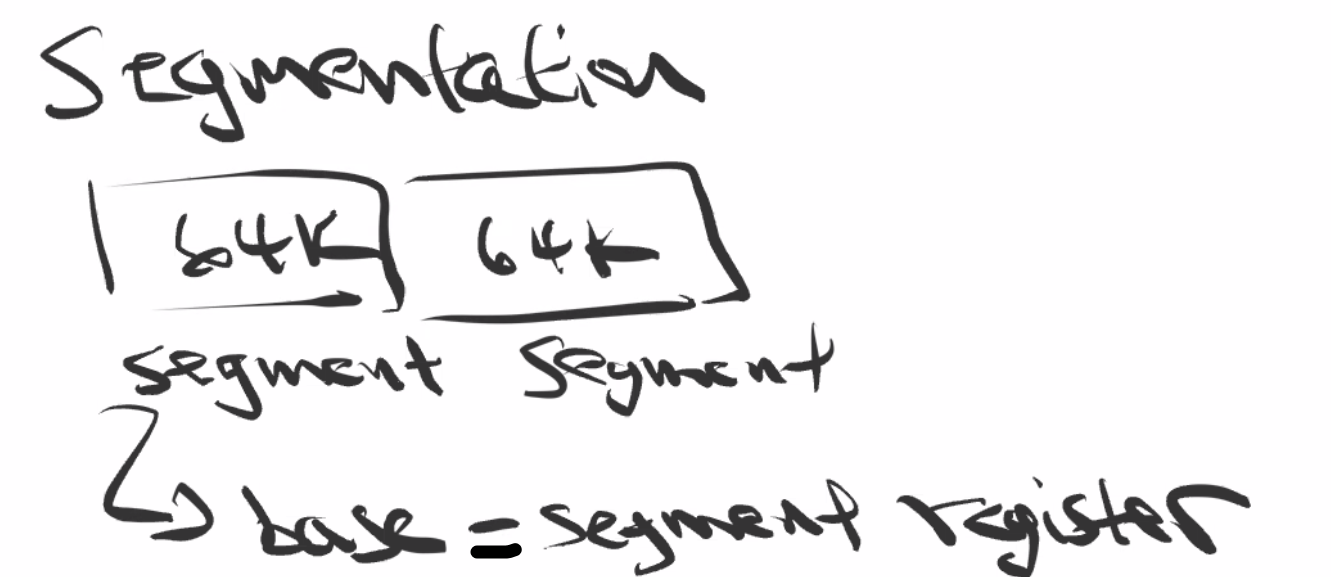 Segmentation
64K 64K
segment segment
base = segment register